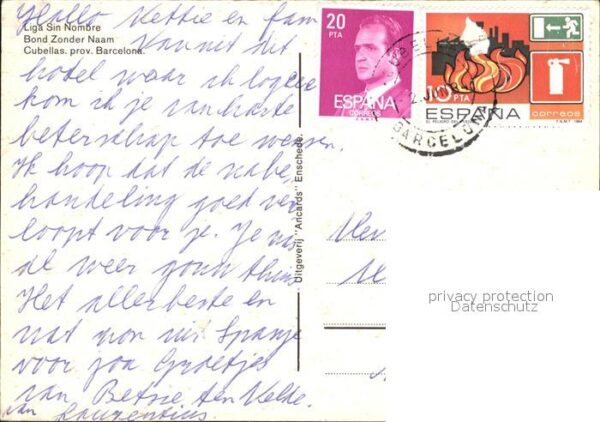 Liga Sin Nombre
Bond Zonder Naam
Cubellas. prov. Barcelona.
Hallo Nettie en fam
Vanuit dit
hotel waar ik logeer
kom ik je van harte
beterschap toe wensen.
Ik hoop dat de nabe
handeling goed ver
loopt voor je. Je
weer thuis
Het allerbeste en
wat zon uit Spanje
voor jou Groetjes
van Betsie ten Velde.
van Laurentius.
Uitgeverij "Aricards" Enschede.
20
PTA
ESPAÑA
CORREOS
16
PTA
ESPAÑA
correos
F.N.M.T. 1984
BARCELONA
privacy protection
Datenschutz